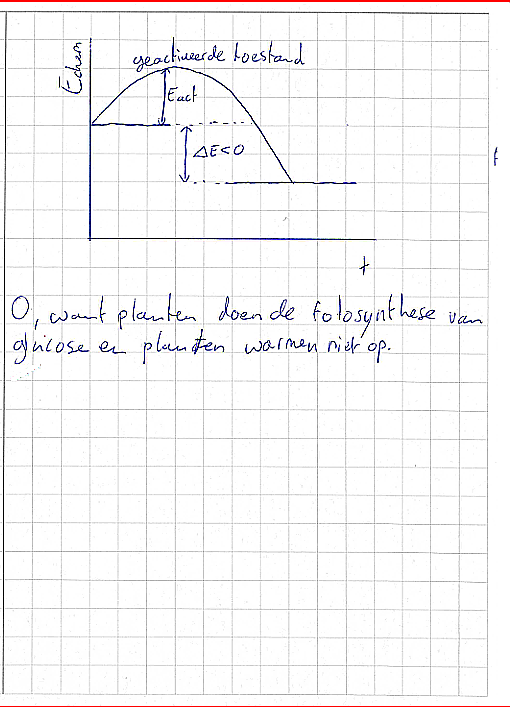 Echem
geactiveerde toestand
Eact
ΔE<0
t
O, want planten doen de fotosynthese van
glucose en planten warmen niet op.